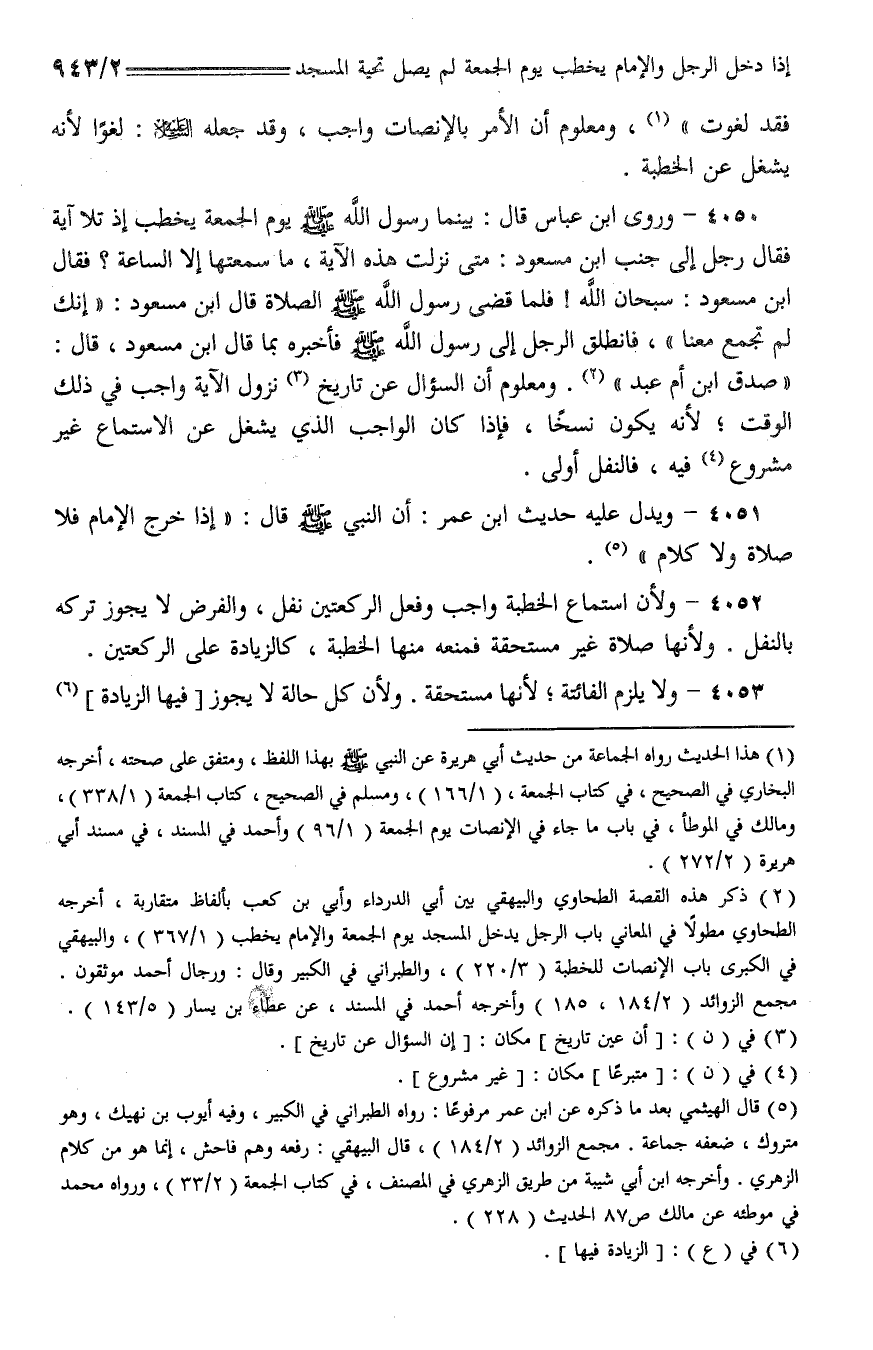 إذا دخل الرجل والإمام يخطب يوم الجمعة لم يصل تحية المسجد ٩٤٣/٢
فقد لغوت » (١) ، ومعلوم أن الأمر بالإنصات واجب ، وقد جعله ﷺ : لغوًا لأنه
يشغل عن الخطبة .
٤٠٥٠ – وروى ابن عباس قال : بينما رسول اللَّه ﷺ يوم الجمعة يخطب إذ تلا آية
فقال رجل إلى جنب ابن مسعود : متى نزلت هذه الآية ، ما سمعتها إلا الساعة ؟ فقال
ابن مسعود : سبحان اللَّه ! فلما قضى رسول اللَّه ﷺ الصلاة قال ابن مسعود : « إنك
لم تجمع معنا » ، فانطلق الرجل إلى رسول اللَّه ﷺ فأخبره بما قال ابن مسعود ، قال :
« صدق ابن أم عبد » (٢) . ومعلوم أن السؤال عن تاريخ (٣) نزول الآية واجب في ذلك
الوقت ؛ لأنه يكون نسخًا ، فإذا كان الواجب الذي يشغل عن الاستماع غير
مشروع (٤) فيه ، فالنفل أولى .
٤٠٥١ – ويدل عليه حديث ابن عمر : أن النبي ﷺ قال : « إذا خرج الإمام فلا
صلاة ولا كلام » (٥) .
٤٠٥٢ – ولأن استماع الخطبة واجب وفعل الركعتين نفل ، والفرض لا يجوز تركه
بالنفل . ولأنها صلاة غير مستحقة فمنعه منها الخطبة ، كالزيادة على الركعتين .
٤٠٥٣ – ولا يلزم الفائتة ؛ لأنها مستحقة . ولأن كل حالة لا يجوز [ فيها الزيادة ] (٦)
(١) هذا الحديث رواه الجماعة من حديث أبي هريرة عن النبي ﷺ بهذا اللفظ ، ومتفق على صحته ، أخرجه
البخاري في الصحيح ، في كتاب الجمعة ، ( ١٦٦/١ ) ، ومسلم في الصحيح ، كتاب الجمعة ( ٣٣٨/١ ) ،
ومالك في الموطأ ، في باب ما جاء في الإنصات يوم الجمعة ( ٩٦/١ ) وأحمد في المسند ، في مسند أبي
هريرة ( ٢٧٢/٢ ) .
(٢) ذكر هذه القصة الطحاوي والبيهقي بين أبي الدرداء وأبي بن كعب بألفاظ متقاربة ، أخرجه
الطحاوي مطولًا في المعاني باب الرجل يدخل المسجد يوم الجمعة والإمام يخطب ( ٣٦٧/١ ) ، والبيهقي
في الكبرى باب الإنصات للخطبة ( ٢٢٠/٣ ) ، والطبراني في الكبير وقال : ورجال أحمد موثقون .
مجمع الزوائد ( ١٨٤/٢ ، ١٨٥ ) وأخرجه أحمد في المسند ، عن عطاء بن يسار ( ١٤٣/٥ ) .
(٣) في ( ن ) : [ أن عين تاريخ ] مكان : [ إن السؤال عن تاريخ ] .
(٤) في ( ن ) : [ متبرعًا ] مكان : [ غير مشروع ] .
(٥) قال الهيثمي بعد ما ذكره عن ابن عمر مرفوعًا : رواه الطبراني في الكبير ، وفيه أيوب بن نهيك ، وهو
متروك ، ضعفه جماعة . مجمع الزوائد ( ١٨٤/٢ ) ، قال البيهقي : رفعه وهم فاحش ، إنما هو من كلام
الزهري . وأخرجه ابن أبي شيبة من طريق الزهري في المصنف ، في كتاب الجمعة ( ٣٣/٢ ) ، ورواه محمد
في موطئه عن مالك ص٨٧ الحديث ( ٢٢٨ ) .
(٦) في ( ع ) : [ الزيادة فيها ] .